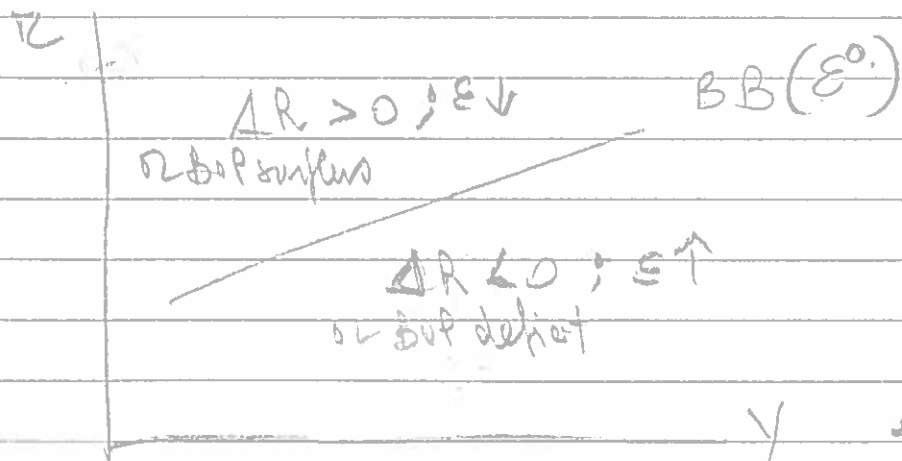 r
BB(ε⁰)
ΔR > 0 ; ε↓
or BoP surplus
ΔR < 0 ; ε↑
or BoP deficit
Y